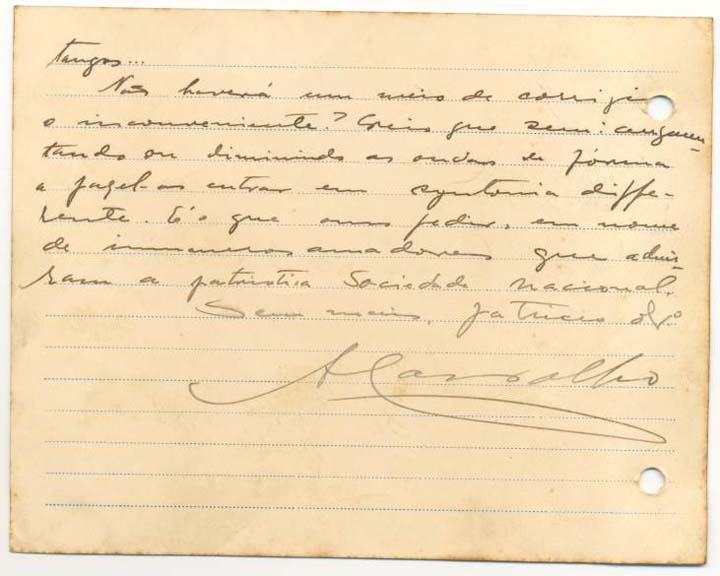 tangos...
Não haverá um meio de corrigir
o inconveniente? Creio que sem: augmen-
tando ou diminuindo as ondas de fórma
a fazel-as entrar em syntonia diffe-
rente. É o que ouso pedir, em nome
de innumeros amadores que admi-
ram a patriotica Sociedade nacional.
Sem mais, patricio
A Carvalho